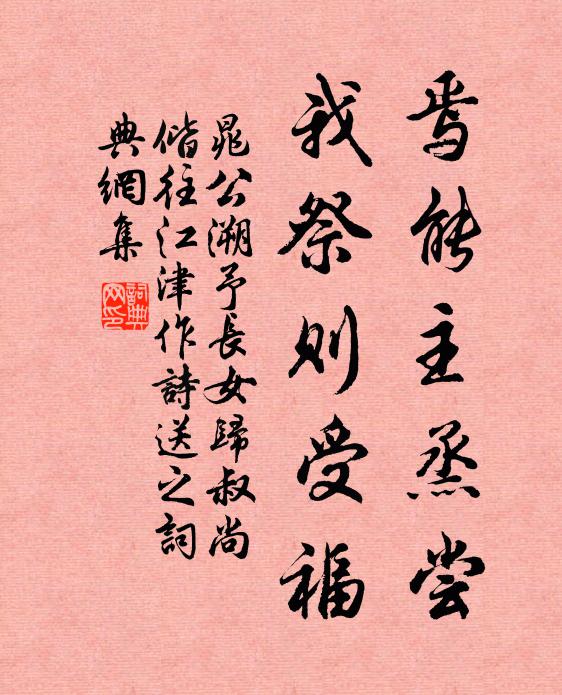 焉能主蒸尝
我祭则受福
晁公溯予長女歸叔尚
偕往江津作詩送之詞
典網集
詞典網印